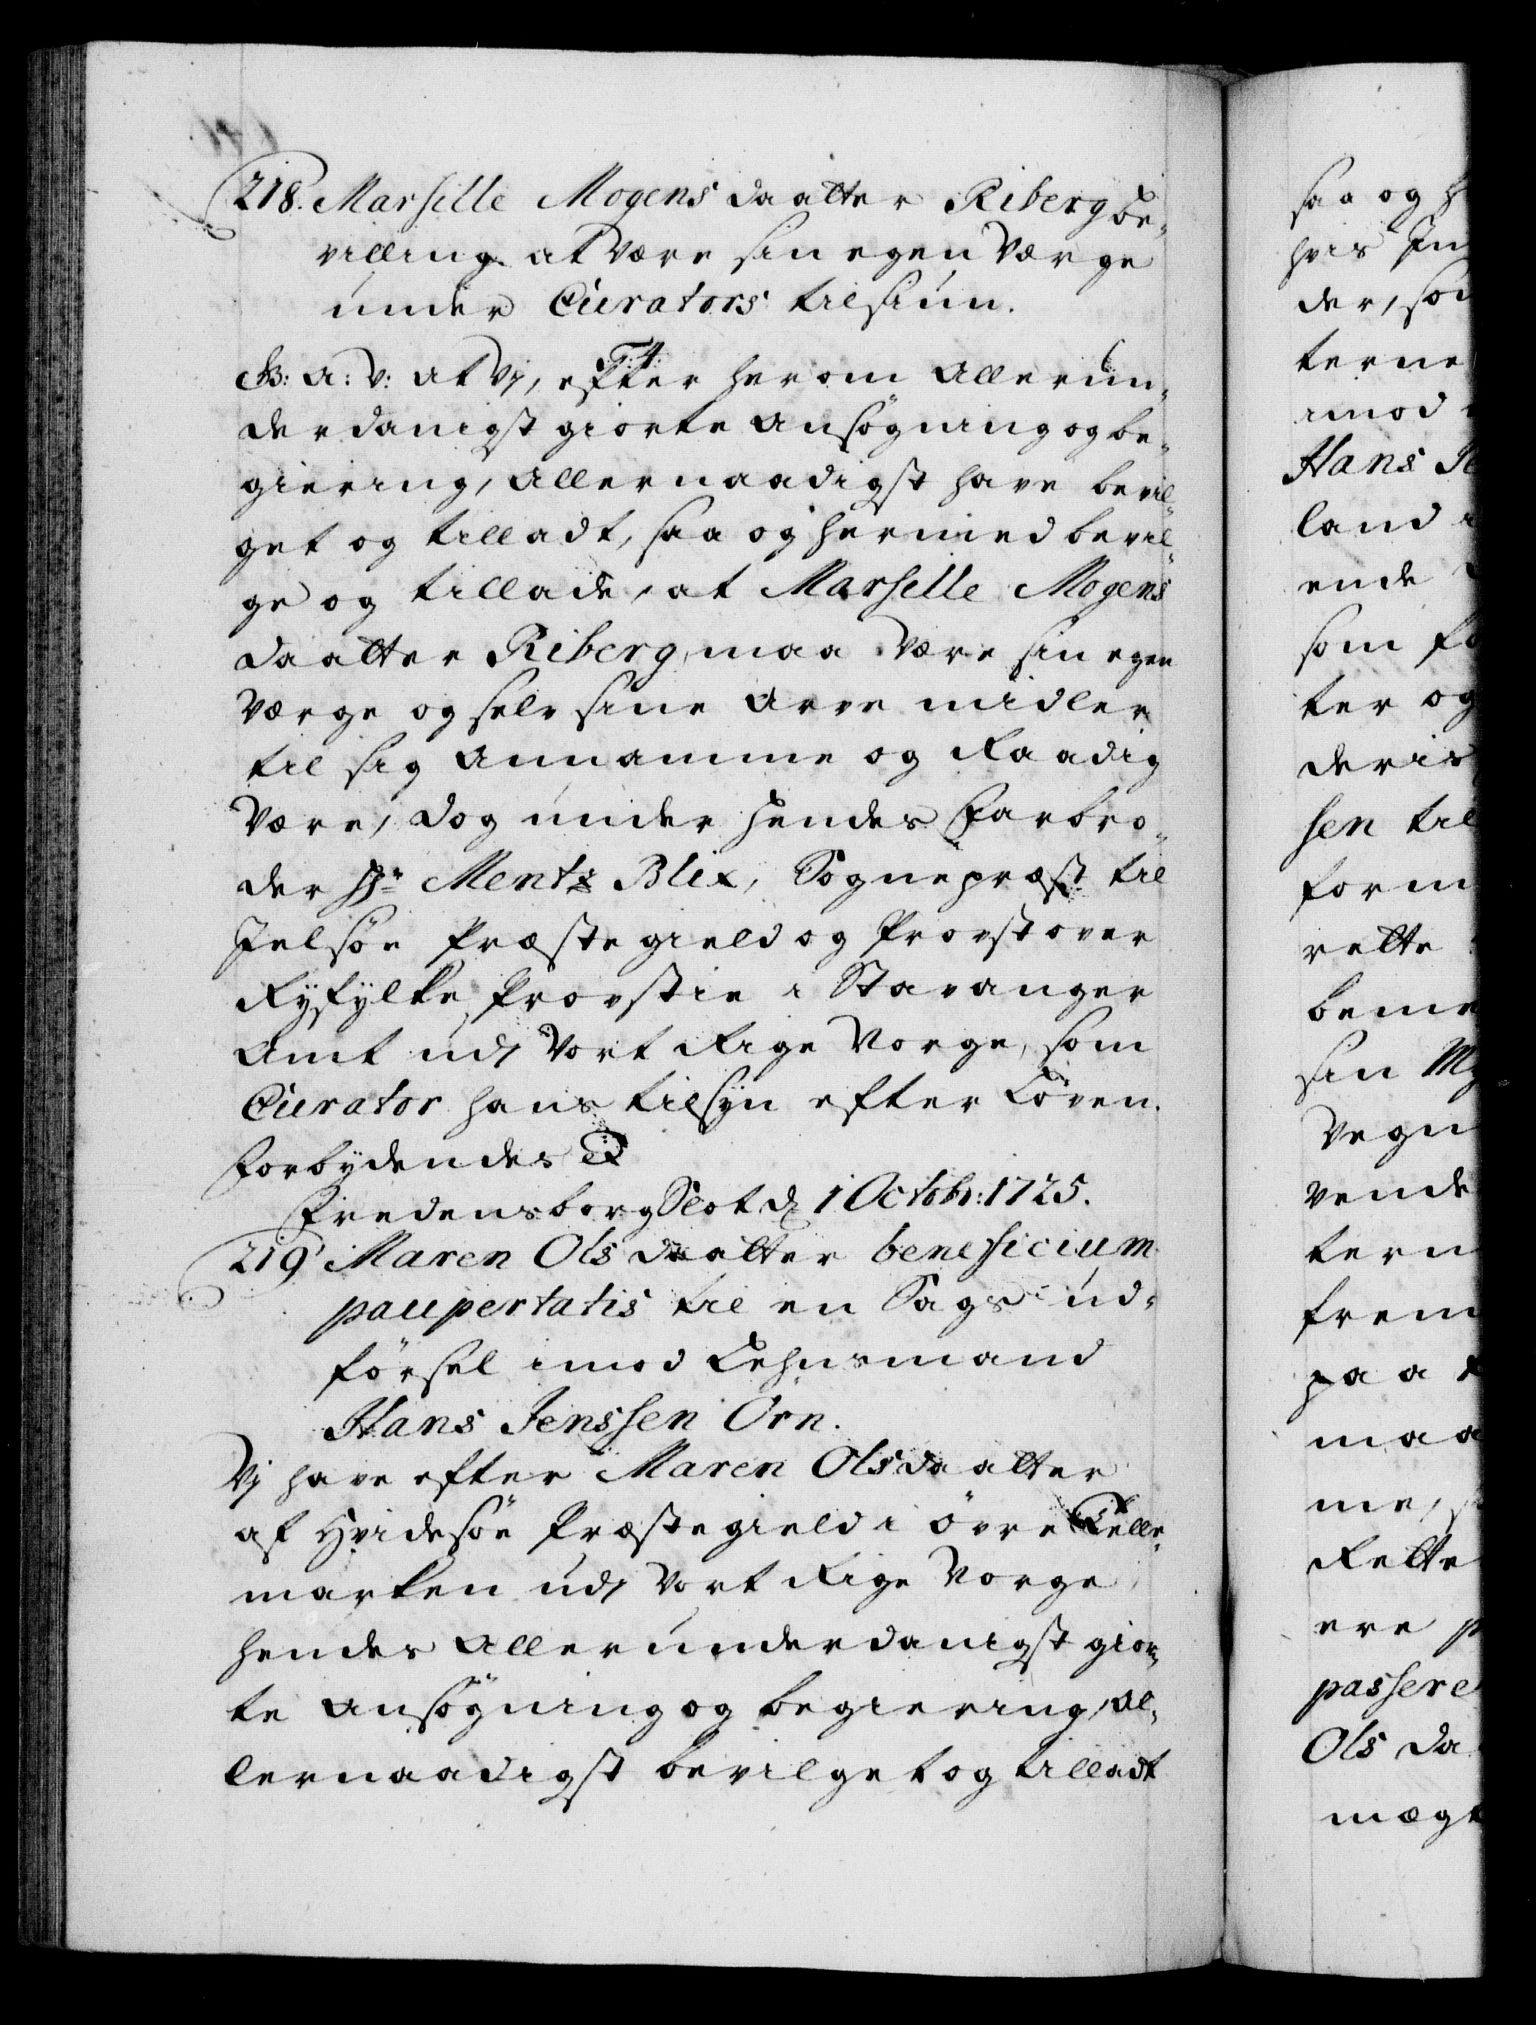 218. Marsille Mogens daatter Riberg be-
villing at være sin egen Værge
under Curators tilsiun.
G: A: V: At Vj, efter herom Allerun-
derdanigst giorte Ansögning og be-
giering, Allernaadigst have bevil-
get og tilladt, saa og hermed bevil-
ge og tillade, at Marsille Mogens
daatter Riberg, maa være sin egen
Værge og selv sine Arve midler
til sig annamme og Raadig
være, dog under hendes Farbro-
der Hr Mentz Blix, Sognepræst til
Jelsöe Præstegield og Provst over
Ryfylke Provstie i Stavanger
Amt udj Vort Rige Norge, som
Curator hans tilsyn efter Loven.
Forbydendes
Fredensborg Slot d. 1 Octobr: 1725.
219 Maren Ols daatter beneficium
paupertatis til en Sags ud-
försel imod Lehnsmand
Hans Jenssen Örn.
Vj have efter Maren Olsdaatter
af Hvidesöe Præstegield i övre Telle-
marken udj Vort Rige Norge
hendes Allerunderdanigst gior-
te Ansögning og begiering, Al-
lernaadigst bevilget og tilladt
saa og
hvis
der,
terne
imod
Hans
land
ende
som
ter og
deris
sen til
form
rette
beme
sin
vegn
vende
tern
frem
paa
maa
me,
Rette
ere
passere
Ols da
mægt